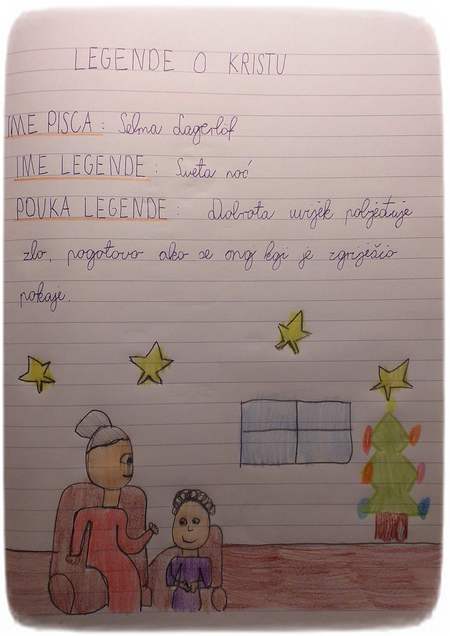 LEGENDE O KRISTU
IME PISCA: Selma Lagerlöf
IME LEGENDE: Sveta noć
POUKA LEGENDE: Dobrota uvijek pobjeđuje
zlo, pogotovo ako se onaj koji je zgriješio
pokaje.